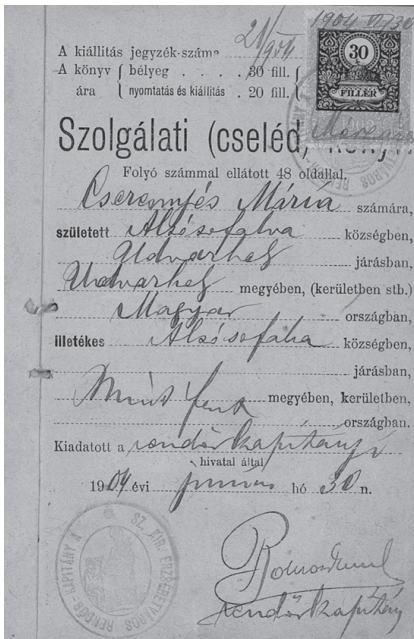 1904 VI/30
A kiállítás jegyzék-száma 21/904
A könyv { bélyeg . . . . 30 fill.
ára { nyomtatás és kiállítás . 20 fill.
30
FILLÉR
Szolgálati (cseléd,
Folyó számmal ellátott 48 oldallal,
Mária számára,
született Alsósofalva községben,
Udvarhely járásban,
Udvarhely megyében, (kerületben stb.)
Magyar országban,
illetékes Alsósofalva községben,
járásban,
Mint fent megyében, kerületben,
országban.
Kiadatott a rendőrkapitányi
hivatal által
1904 évi június hó 30 n.
rendőrkapitány